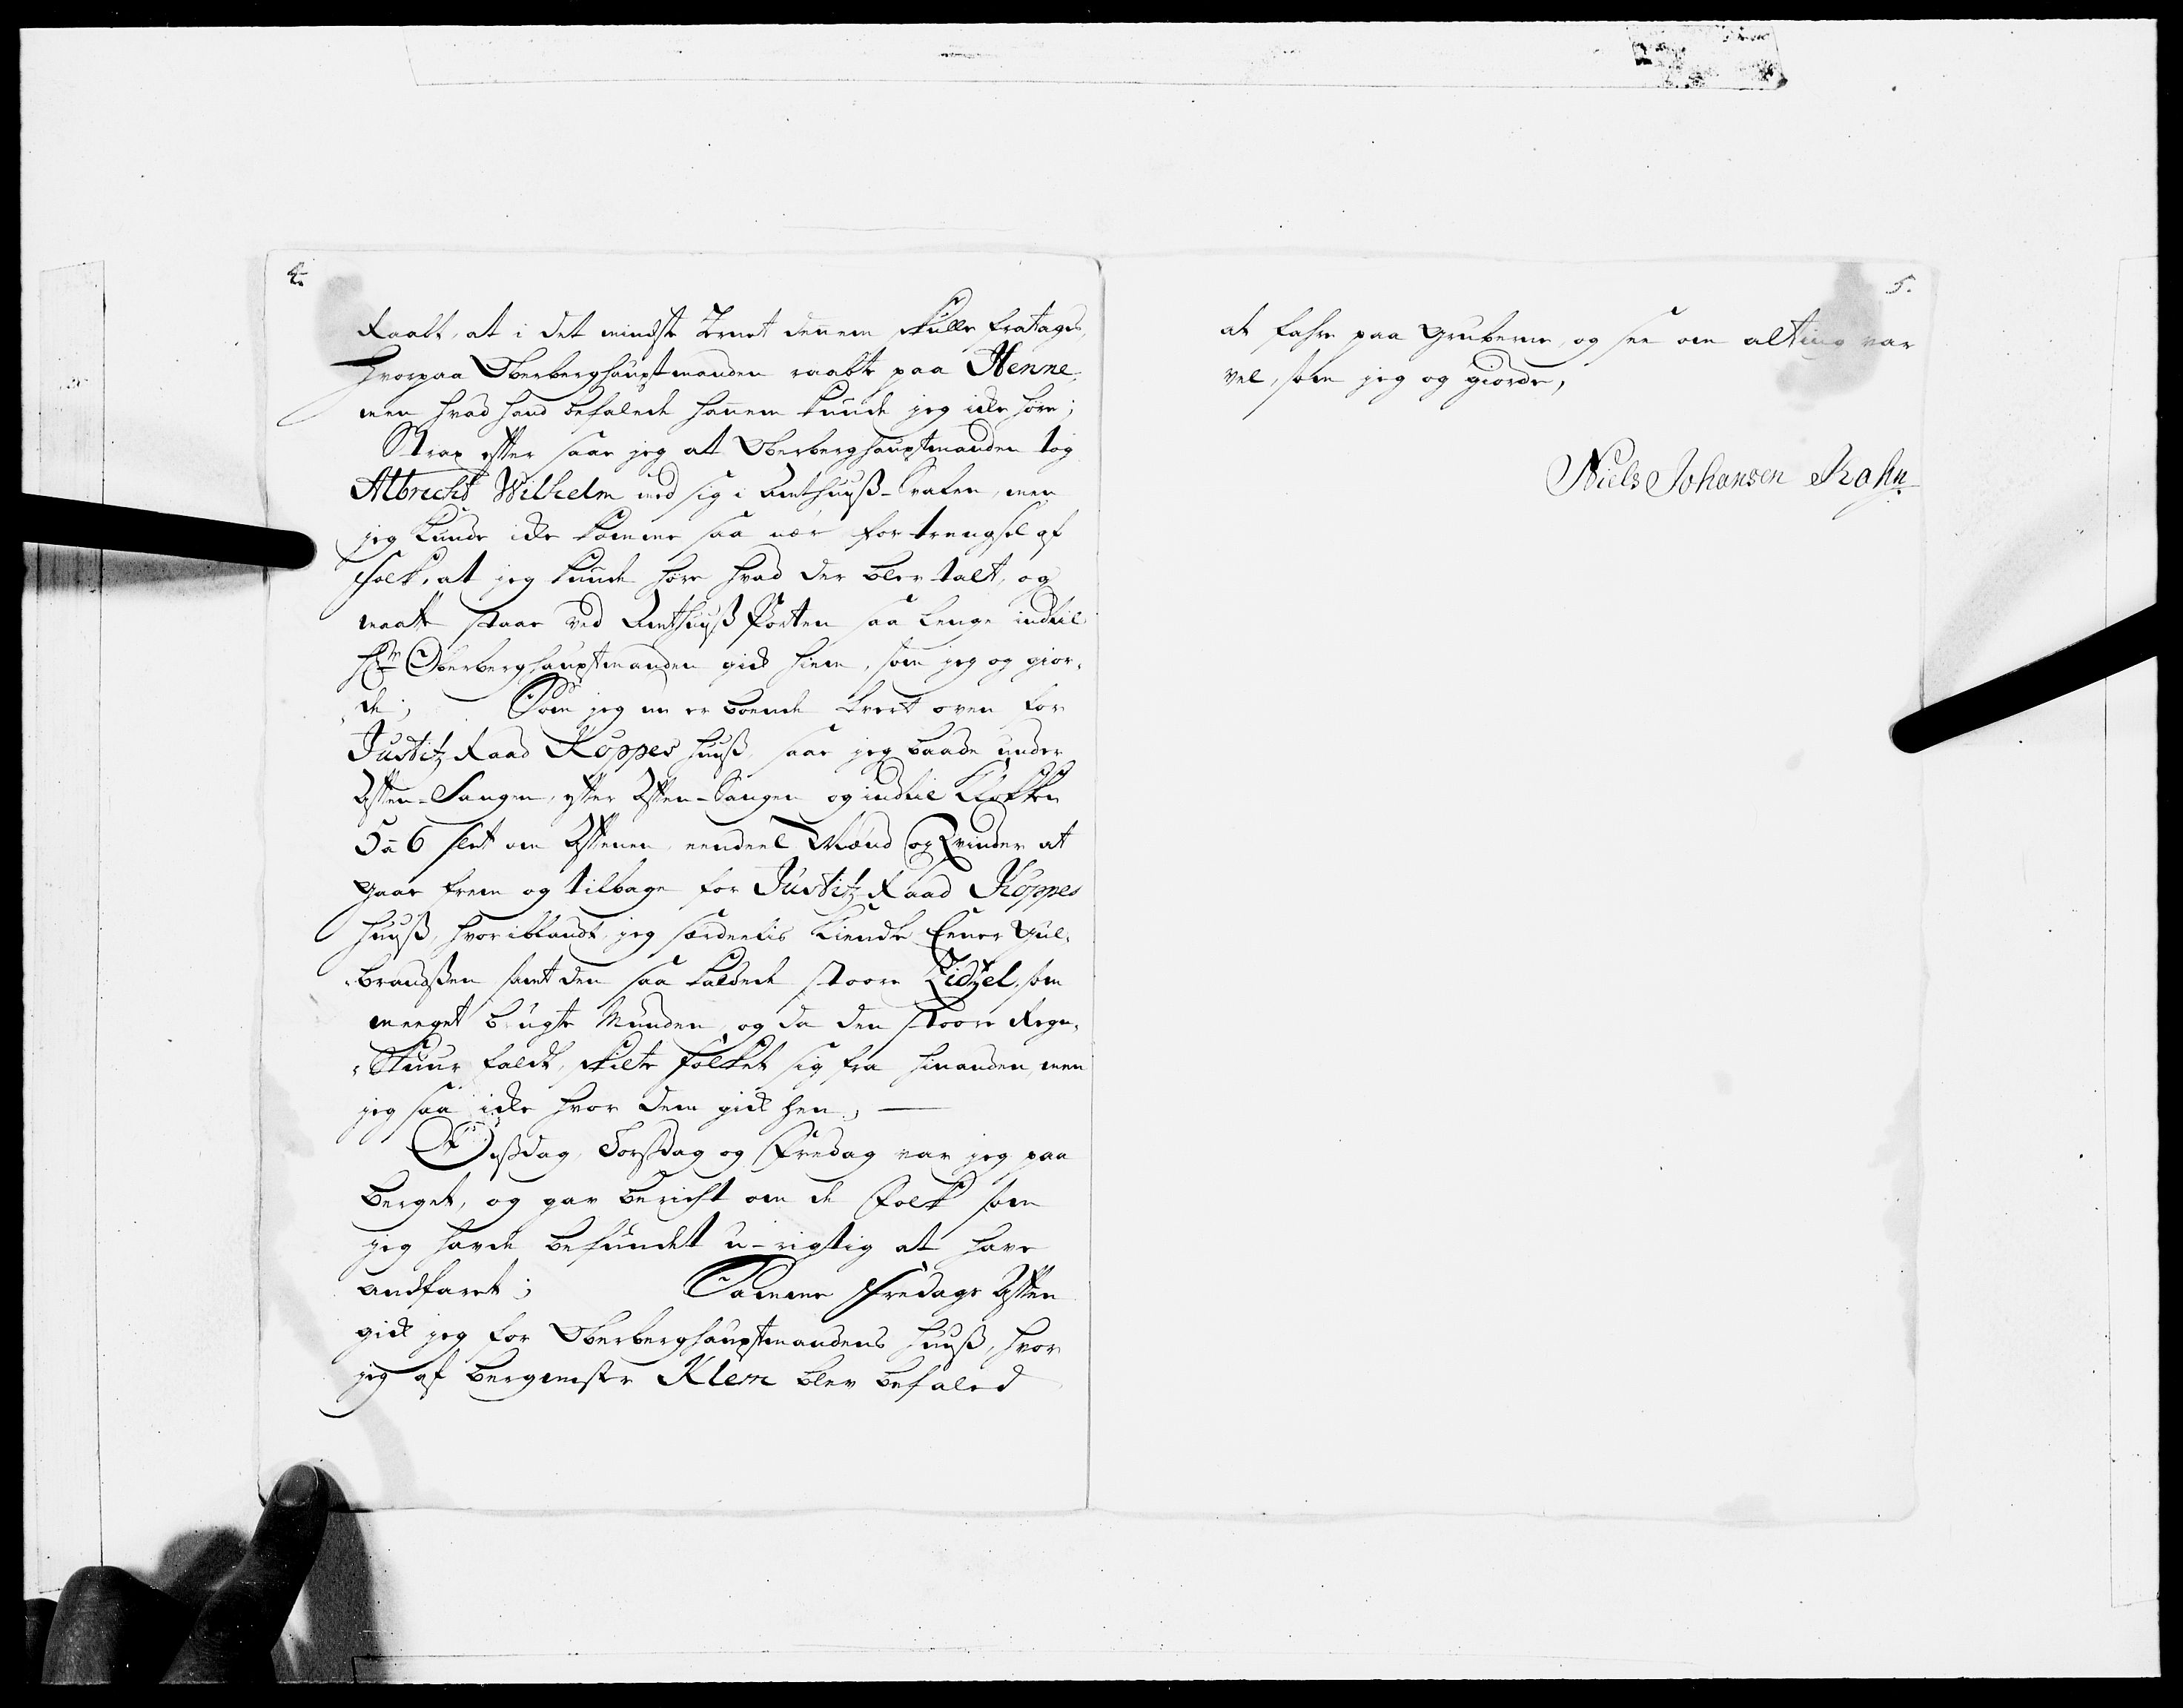 4.
Raabt, at i det mindste Brnet dennem skulle fratages,
Hvorpaa Oberberghauptmanden raabte paa Henne,
men hvad hand befalede hannem kunde jeg icke høre;
Strax efter saae jeg at Oberberghauptmanden tog
Albrecht Wilhelm med sig i Amthuuß-Svalen, men
jeg kunde icke komme saa nær for trengsel af
Folk, at jeg kunde høre hvad der blev talt, og
maatte staae ved Amthuuß Porten saa lenge indtil
Hr Oberberghauptmanden gick hiem, som jeg og gior-
de; Som jeg nu er boende tvert over for
Justitz Raad Köppes huuß, saae jeg baade under
Aften-Sangen, efter Aften-Sangen og indtil Klokken
5 à 6 slet om Aftenen, eendeel Mænd og Qvinder at
gaae frem og tilbage for Justitz Raad Köppes
Huuß, hvoriblandt jeg særdeelis kiendte Einer Gul-
brandßen samt den saa kaldede stoore Zidzel, som
meeget brugte Munden, og da den stoore Regn-
Skuur faldt, skilte Folket sig fra hinanden, men
jeg saa icke hvor dem gick hen,
Onßdag, Torßdag og Fredag var jeg paa
Berget, og gav bericht om de Folk som
jeg havde befundet u-rigtig at have
andfaret; Samme Fredags Aften
gick jeg for Oberberghauptmandens Huuß, hvor
jeg af Bergmester Klem blev befaled
5.
at fahre paa Gruberne, og see om alting var
vel, som jeg og giorde,
Niels Johansen Rahn